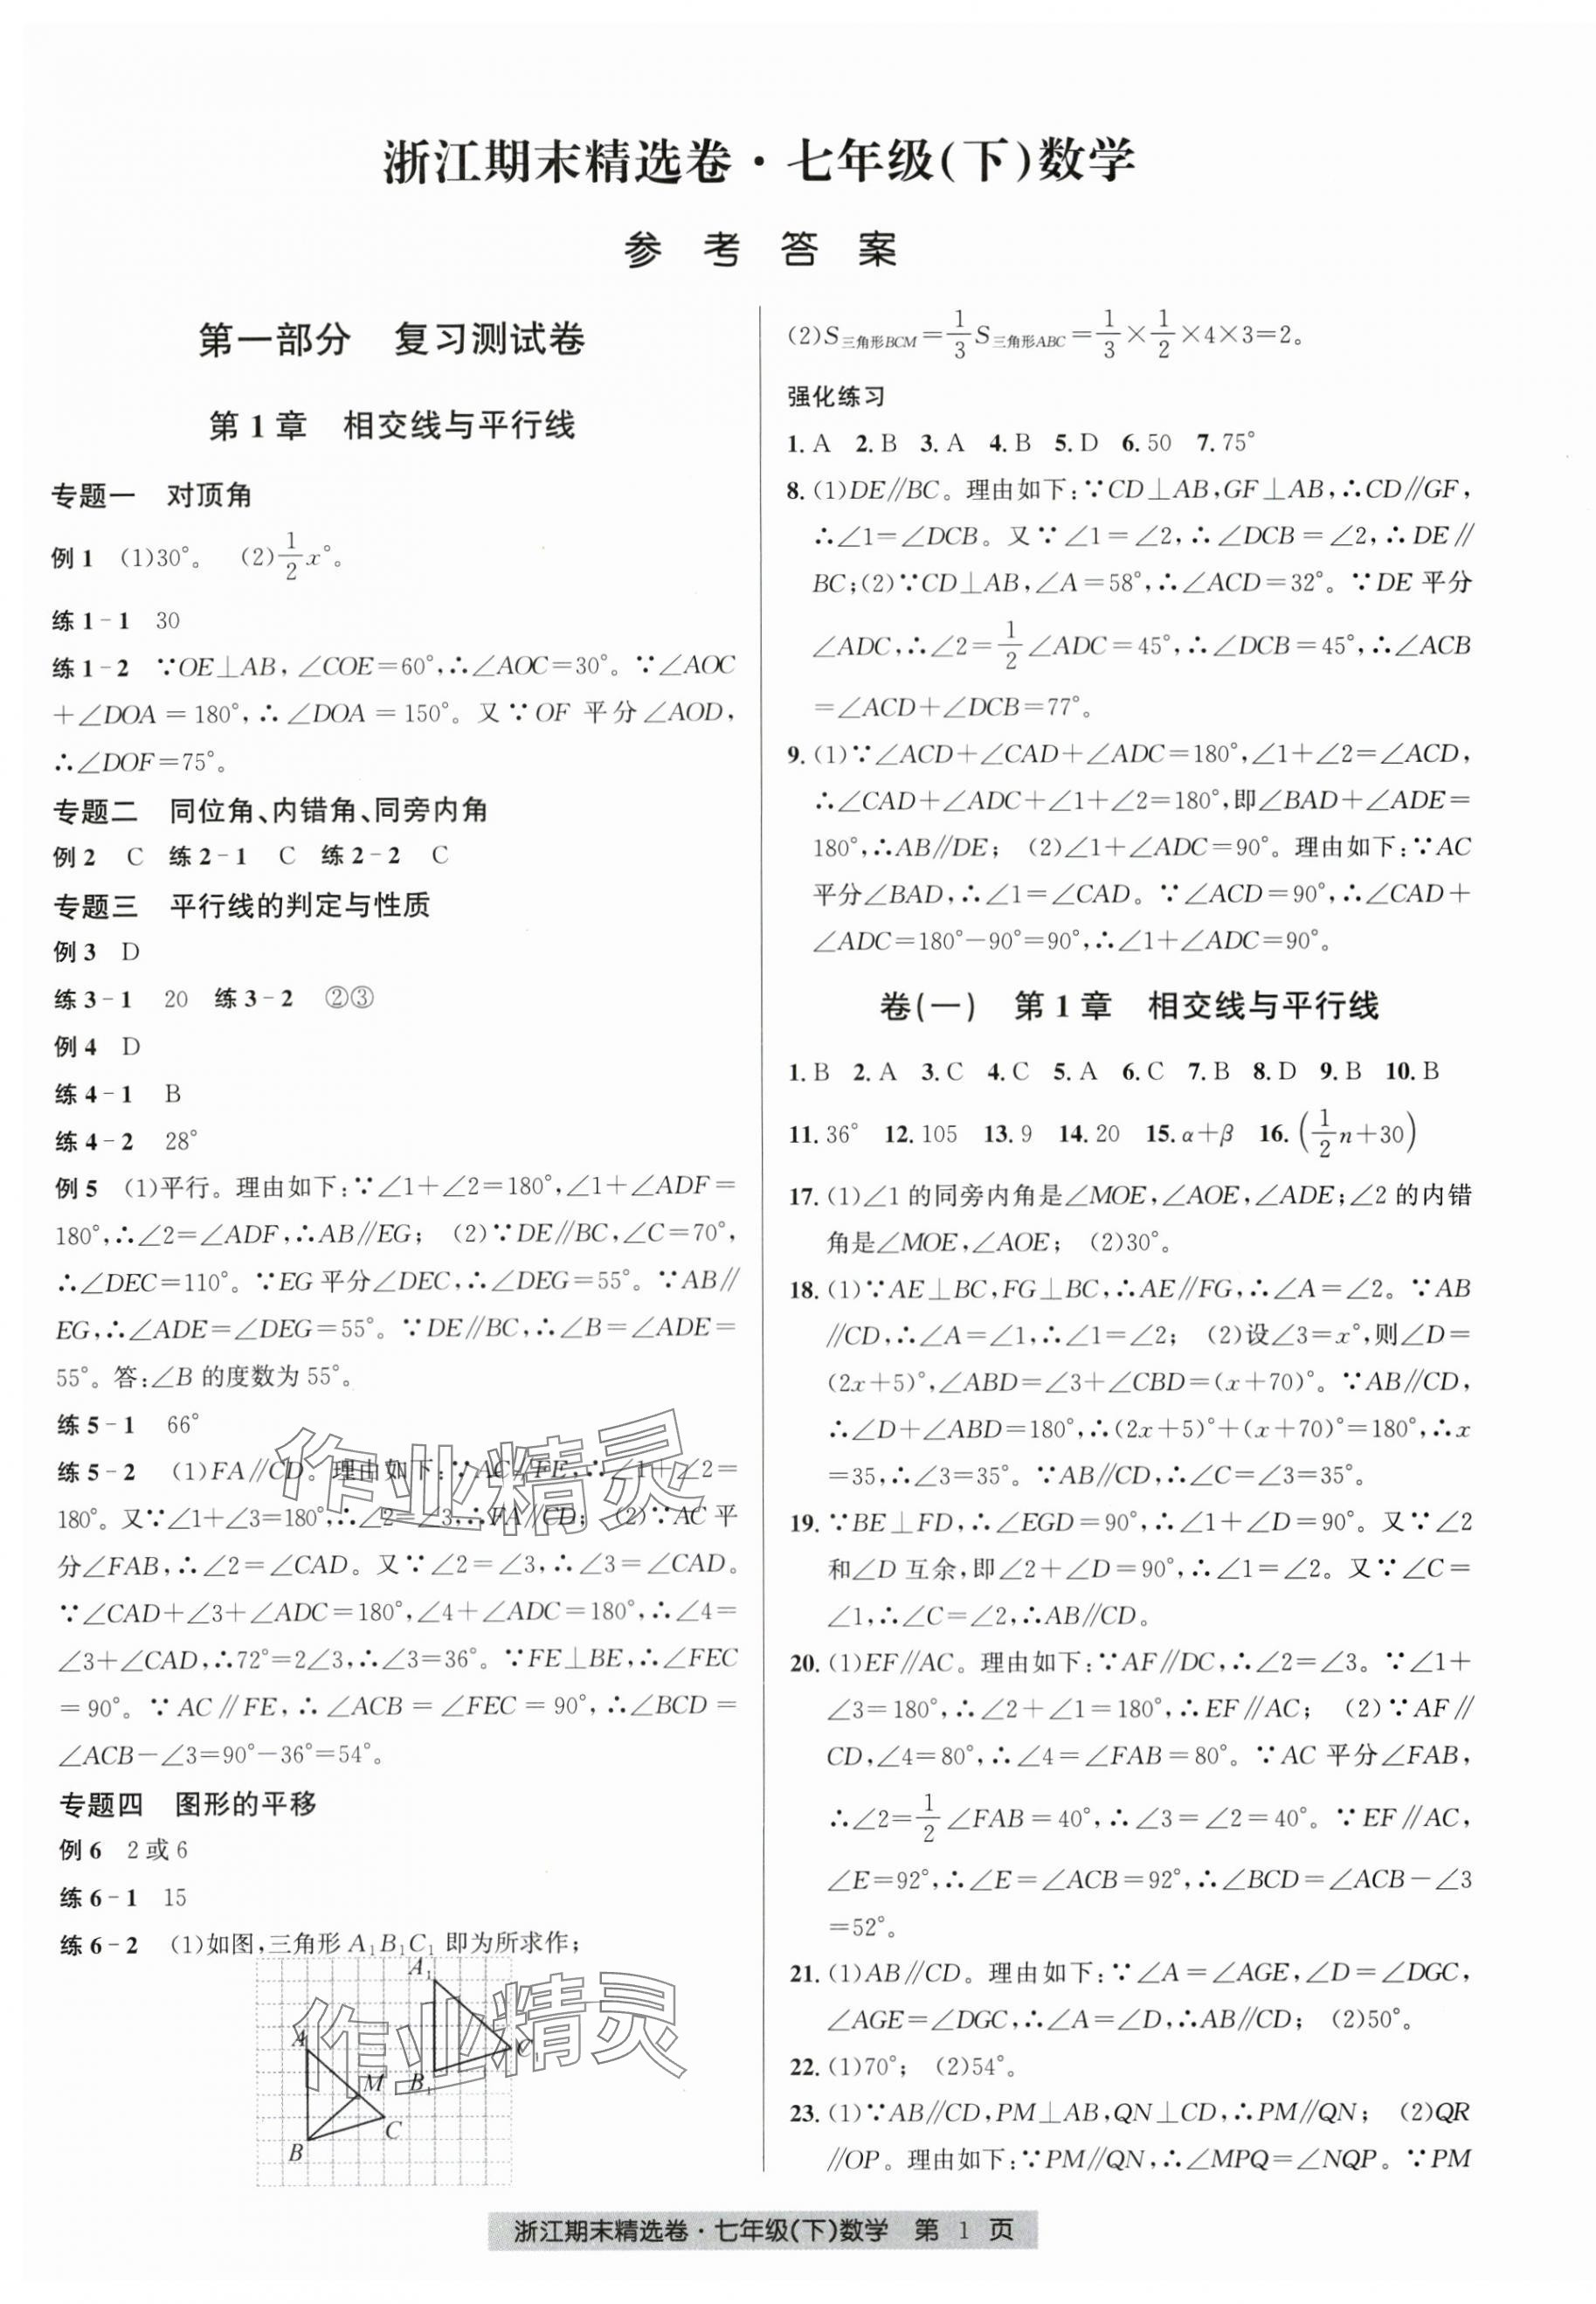 浙江期末精选卷·七年级(下)数学
参 考 答 案
第一部分 复习测试卷
第 1 章 相交线与平行线
专题一 对顶角
例 1 (1)30°。 (2)\frac{1}{2}x°。
练 1-1 30
练 1-2 ∵OE⊥AB,∠COE=60°,∴∠AOC=30°。∵∠AOC
+∠DOA=180°,∴∠DOA=150°。又∵OF 平分∠AOD,
∴∠DOF=75°。
专题二 同位角、内错角、同旁内角
例 2 C 练 2-1 C 练 2-2 C
专题三 平行线的判定与性质
例 3 D
练 3-1 20 练 3-2 ②③
例 4 D
练 4-1 B
练 4-2 28°
例 5 (1)平行。理由如下:∵∠1+∠2=180°,∠1+∠ADF=
180°,∴∠2=∠ADF,∴AB∥EG; (2)∵DE∥BC,∠C=70°,
∴∠DEC=110°。∵EG 平分∠DEC,∴∠DEG=55°。∵AB∥
EG,∴∠ADE=∠DEG=55°。∵DE∥BC,∴∠B=∠ADE=
55°。答:∠B 的度数为 55°。
练 5-1 66°
练 5-2 (1)FA∥CD。理由如下:∵AC∥FE,∴∠1+∠2=
180°。又∵∠1+∠3=180°,∴∠2=∠3,∴FA∥CD; (2)∵AC 平
分∠FAB,∴∠2=∠CAD。又∵∠2=∠3,∴∠3=∠CAD。
∵∠CAD+∠3+∠ADC=180°,∠4+∠ADC=180°,∴∠4=
∠3+∠CAD,∴72°=2∠3,∴∠3=36°。∵FE⊥BE,∴∠FEC
=90°。∵AC∥FE,∴∠ACB=∠FEC=90°,∴∠BCD=
∠ACB-∠3=90°-36°=54°。
专题四 图形的平移
例 6 2 或 6
练 6-1 15
练 6-2 (1)如图,三角形 A₁B₁C₁ 即为所求作;
A₁
A
C₁
M
B₁
C
B
作业精灵
作业精灵
(2)S三角形BCM=\frac{1}{3}S三角形ABC=\frac{1}{3}×\frac{1}{2}×4×3=2。
强化练习
1. A 2. B 3. A 4. B 5. D 6. 50 7. 75°
8. (1)DE∥BC。理由如下:∵CD⊥AB,GF⊥AB,∴CD∥GF,
∴∠1=∠DCB。又∵∠1=∠2,∴∠DCB=∠2,∴DE∥
BC;(2)∵CD⊥AB,∠A=58°,∴∠ACD=32°。∵DE 平分
∠ADC,∴∠2=\frac{1}{2}∠ADC=45°,∴∠DCB=45°,∴∠ACB
=∠ACD+∠DCB=77°。
9. (1)∵∠ACD+∠CAD+∠ADC=180°,∠1+∠2=∠ACD,
∴∠CAD+∠ADC+∠1+∠2=180°,即∠BAD+∠ADE=
180°,∴AB∥DE; (2)∠1+∠ADC=90°。理由如下:∵AC
平分∠BAD,∴∠1=∠CAD。∵∠ACD=90°,∴∠CAD+
∠ADC=180°-90°=90°,∴∠1+∠ADC=90°。
卷(一) 第 1 章 相交线与平行线
1. B 2. A 3. C 4. C 5. A 6. C 7. B 8. D 9. B 10. B
11. 36° 12. 105 13. 9 14. 20 15. α+β 16. (\frac{1}{2}n+30)
17. (1)∠1 的同旁内角是∠MOE,∠AOE,∠ADE;∠2 的内错
角是∠MOE,∠AOE; (2)30°。
18. (1)∵AE⊥BC,FG⊥BC,∴AE∥FG,∴∠A=∠2。∵AB
∥CD,∴∠A=∠1,∴∠1=∠2; (2)设∠3=x°,则∠D=
(2x+5)°,∠ABD=∠3+∠CBD=(x+70)°。∵AB∥CD,
∴∠D+∠ABD=180°,∴(2x+5)°+(x+70)°=180°,∴x
=35,∴∠3=35°。∵AB∥CD,∴∠C=∠3=35°。
19. ∵BE⊥FD,∴∠EGD=90°,∴∠1+∠D=90°。又∵∠2
和∠D 互余,即∠2+∠D=90°,∴∠1=∠2。又∵∠C=
∠1,∴∠C=∠2,∴AB∥CD。
20. (1)EF∥AC。理由如下:∵AF∥DC,∴∠2=∠3。∵∠1+
∠3=180°,∴∠2+∠1=180°,∴EF∥AC; (2)∵AF∥
CD,∠4=80°,∴∠4=∠FAB=80°。∵AC 平分∠FAB,
∴∠2=\frac{1}{2}∠FAB=40°,∴∠3=∠2=40°。∵EF∥AC,
∠E=92°,∴∠E=∠ACB=92°,∴∠BCD=∠ACB-∠3
=52°。
21. (1)AB∥CD。理由如下:∵∠A=∠AGE,∠D=∠DGC,
∠AGE=∠DGC,∴∠A=∠D,∴AB∥CD; (2)50°。
22. (1)70°; (2)54°。
23. (1)∵AB∥CD,PM⊥AB,QN⊥CD,∴PM∥QN; (2)QR
∥OP。理由如下:∵PM∥QN,∴∠MPQ=∠NQP。∵PM
浙江期末精选卷·七年级(下)数学 第 1 页